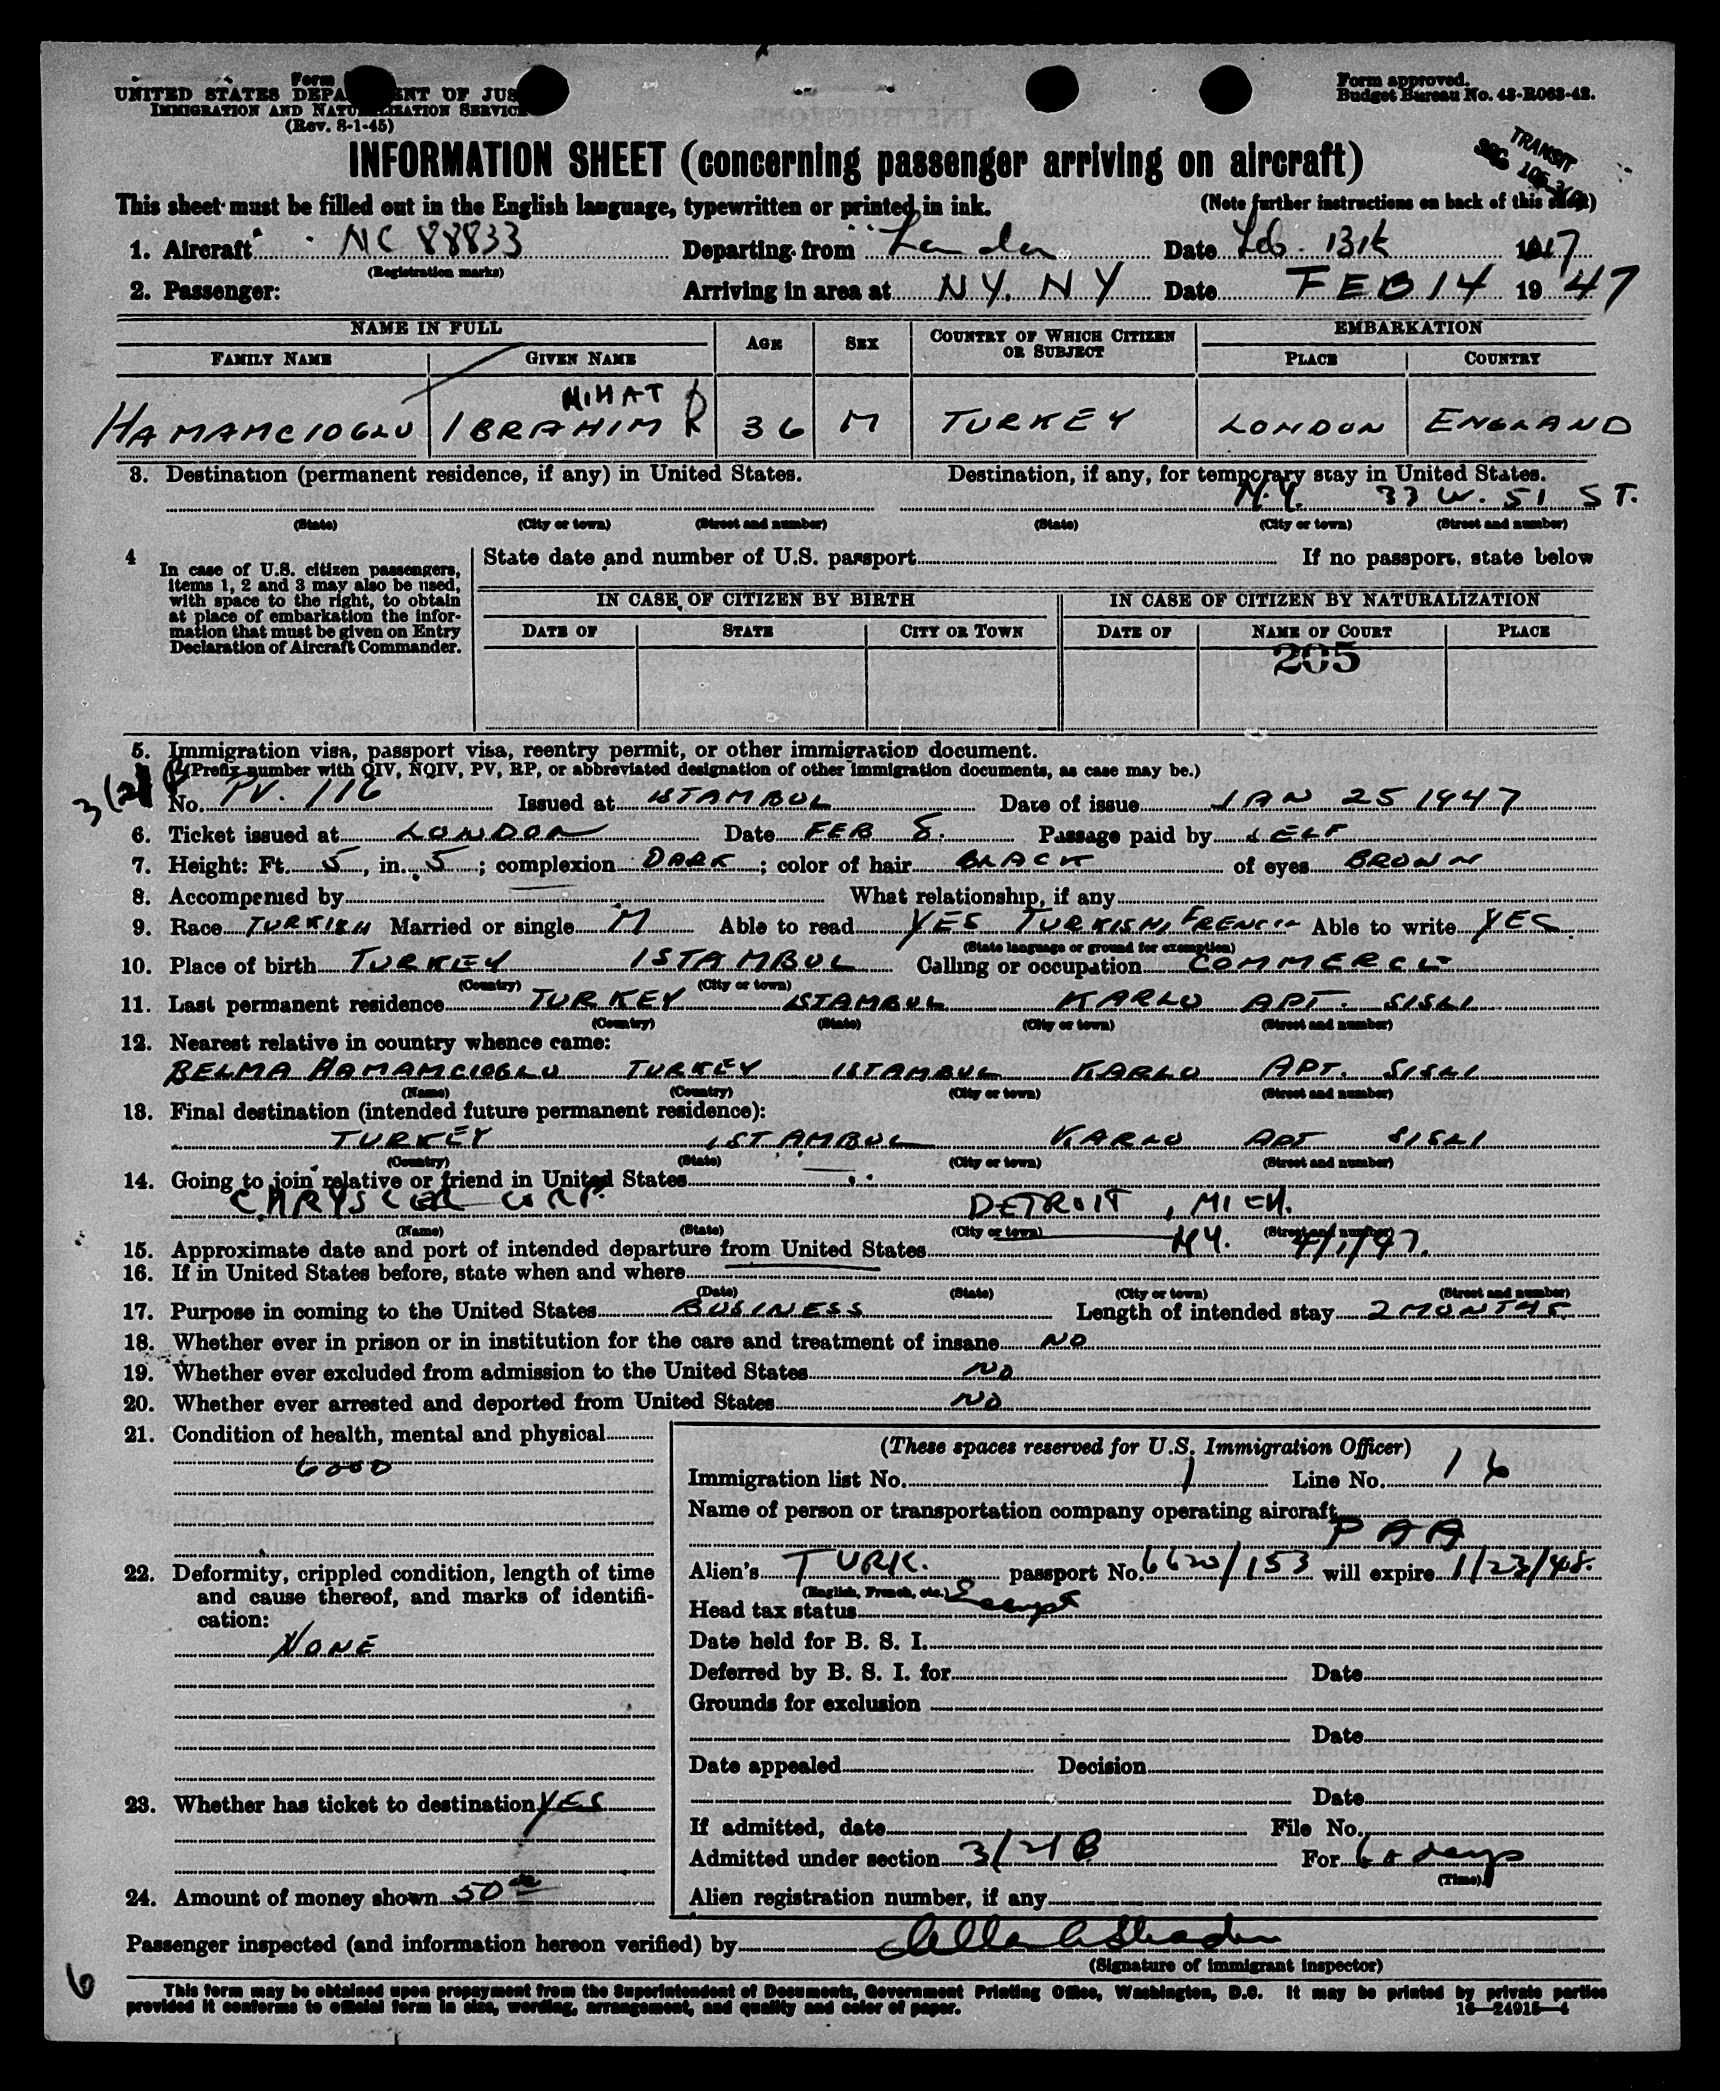 Form
UNITED STATES DEPARTMENT OF JUS
IMMIGRATION AND NATURALIZATION SERVICE
(Rev. 8-1-45)
Form approved.
Budget Bureau No. 43-R063-42.
INFORMATION SHEET (concerning passenger arriving on aircraft)
TRANSIT
SEC
This sheet must be filled out in the English language, typewritten or printed in ink. (Note further instructions on back of this sheet)
1. Aircraft NC 88833 Departing from London Date Feb. 13th 1947
(Registration marks)
2. Passenger: Arriving in area at N.Y. N Y Date FEB 14 1947
NAME IN FULL
FAMILY NAME GIVEN NAME AGE SEX COUNTRY OF WHICH CITIZEN OR SUBJECT EMBARKATION
PLACE COUNTRY
NIHAT
HAMAMCIOGLU IBRAHIM R 36 M TURKEY LONDON ENGLAND
3. Destination (permanent residence, if any) in United States. Destination, if any, for temporary stay in United States.
N.Y. 33 W. 51 ST.
(State) (City or town) (Street and number) (State) (City or town) (Street and number)
4 In case of U.S. citizen passengers, items 1, 2 and 3 may also be used, with space to the right, to obtain at place of embarkation the information that must be given on Entry Declaration of Aircraft Commander.
State date and number of U.S. passport If no passport, state below
IN CASE OF CITIZEN BY BIRTH IN CASE OF CITIZEN BY NATURALIZATION
DATE OF STATE CITY OR TOWN DATE OF NAME OF COURT PLACE
205
5. Immigration visa, passport visa, reentry permit, or other immigration document.
(Prefix number with QIV, NQIV, PV, RP, or abbreviated designation of other immigration documents, as case may be.)
3(2) B
No. PV. 116 Issued at ISTAMBUL Date of issue JAN 25 1947
6. Ticket issued at LONDON Date FEB 8. Passage paid by SELF
7. Height: Ft. 5, in. 5; complexion DARK; color of hair BLACK of eyes BROWN
8. Accompanied by What relationship, if any
9. Race TURKISH Married or single M Able to read YES TURKISH, FRENCH Able to write YES
(State language or ground for exemption)
10. Place of birth TURKEY ISTAMBUL Calling or occupation COMMERCE
(Country) (City or town)
11. Last permanent residence TURKEY ISTAMBUL KARLO APT. SISLI
(Country) (State) (City or town) (Street and number)
12. Nearest relative in country whence came:
BELMA HAMAMCIOGLU TURKEY ISTAMBUL KARLO APT. SISLI
(Name) (Country) (City or town) (Street and number)
13. Final destination (intended future permanent residence):
TURKEY ISTAMBUL KARLO APT SISLI
(Country) (State) (City or town) (Street and number)
14. Going to join relative or friend in United States
CHRYSLER CORP. DETROIT, MICH.
(Name) (State) (City or town) (Street and number)
15. Approximate date and port of intended departure from United States NY. 4/1/47.
16. If in United States before, state when and where
(Date) (State) (City or town) (Street and number)
17. Purpose in coming to the United States BUSINESS Length of intended stay 2 MONTHS
18. Whether ever in prison or in institution for the care and treatment of insane NO
19. Whether ever excluded from admission to the United States NO
20. Whether ever arrested and deported from United States NO
21. Condition of health, mental and physical
GOOD
22. Deformity, crippled condition, length of time and cause thereof, and marks of identification:
NONE
23. Whether has ticket to destination YES
24. Amount of money shown 50
(These spaces reserved for U.S. Immigration Officer)
Immigration list No. 1 Line No. 16
Name of person or transportation company operating aircraft
PAA
Alien's TURK. passport No. 6620/153 will expire 1/23/48.
(English, French, etc.)
Head tax status Exempt
Date held for B. S. I.
Deferred by B. S. I. for Date
Grounds for exclusion
Date
Date appealed Decision
Date
If admitted, date File No.
Admitted under section 3/2/B For 60 days
(Time)
Alien registration number, if any
Passenger inspected (and information hereon verified) by
(Signature of immigrant inspector)
6
This form may be obtained upon prepayment from the Superintendent of Documents, Government Printing Office, Washington, D.C. It may be printed by private parties
provided it conforms to official form in size, wording, arrangement, and quality and color of paper. 16—24915-4